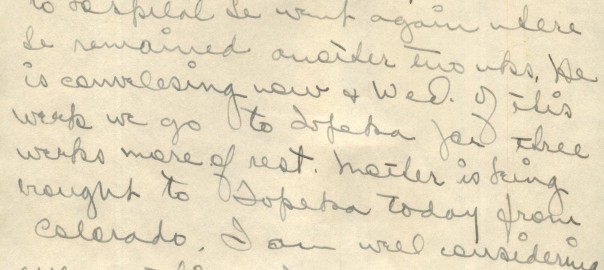 to hospital he went again where
he remained another two wks. He
is convelesing now & Wed. of this
week we go to Topeka for three
weeks more of rest. Mother is being
brought to Topeka today from
Colorado. I am well considering